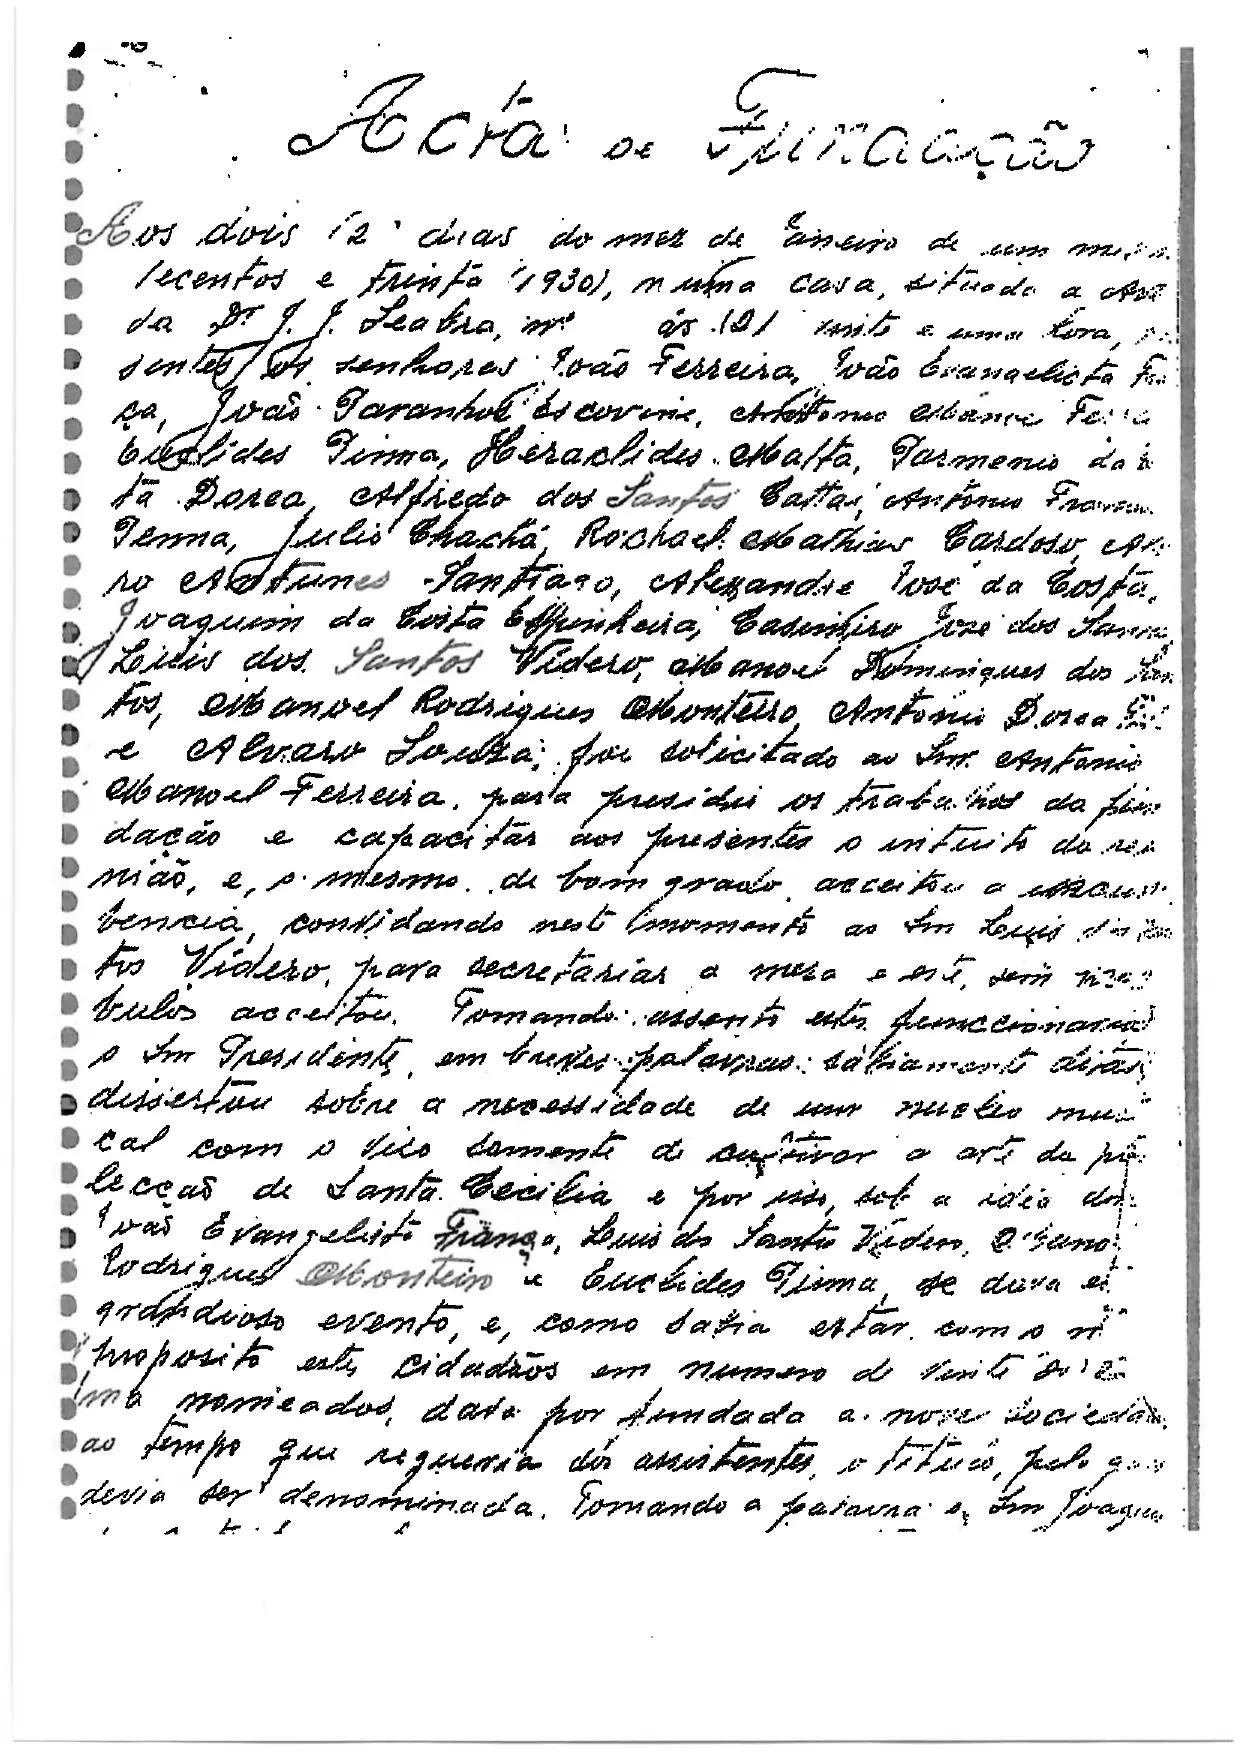 Acta de Fundação
Aos dois (2) dias do mez de Janeiro de um mil
/ecentos e trinta (1930), n'uma casa, situada a
da Dr J. J. Seabra, nº ás (21) vinte e uma hora,
sentes os senhores João Ferreira, João Evangelista
ça, João Paranhos Escovine, Antonio Manoe
Euclides Pinna, Heraclides Malta, Parmenio da
ta Dorea, Alfredo dos Santos Battai, Antônio
Penna, Julio Chachá, Rochael Mathias Cardoso,
ro Antunes Santiago, Alexandre José da Costa,
Joaquim da Costa Espinheira, Casimiro José dos
Luiis dos Santos Videro, Manoel Domingues dos San
tos, Manoel Rodrigues Monteiro, Antonio Dorea
e Alvaro Souza; foi solicitado ao Snr. Antonio
Manoel Ferreira, para presidir os trabalhos da fun
dação e capacitar aos presentes o intuito da reu
nião, e, o mesmo de bom grado acceitou a
bencia, convidando neste momento ao Snr Luiis
tos Videro, para secretariar a mesa e este, sem
bulos acceitou. Tomando assento estes funccionarios
o Snr Presidente, em breves palavras sabiamente
dissertou sobre a necessidade de um nucleo musi
cal com o viso somente de cultivar a arte da
lecção de Santa Cecilia e por isso, sob a idéa
João Evangelista França, Luis do Santos Videro,
Rodrigues Monteiro e Euclides Pinna, se dava
grandioso evento, e, como sabia estar com o
proposito estes cidadãos em numero de vinte
ma nomeados, dava por fundada a nova sociedade
ao tempo que requeria dos assistentes, o titulo, pelo
devia ser denominada. Tomando a palavra o Snr